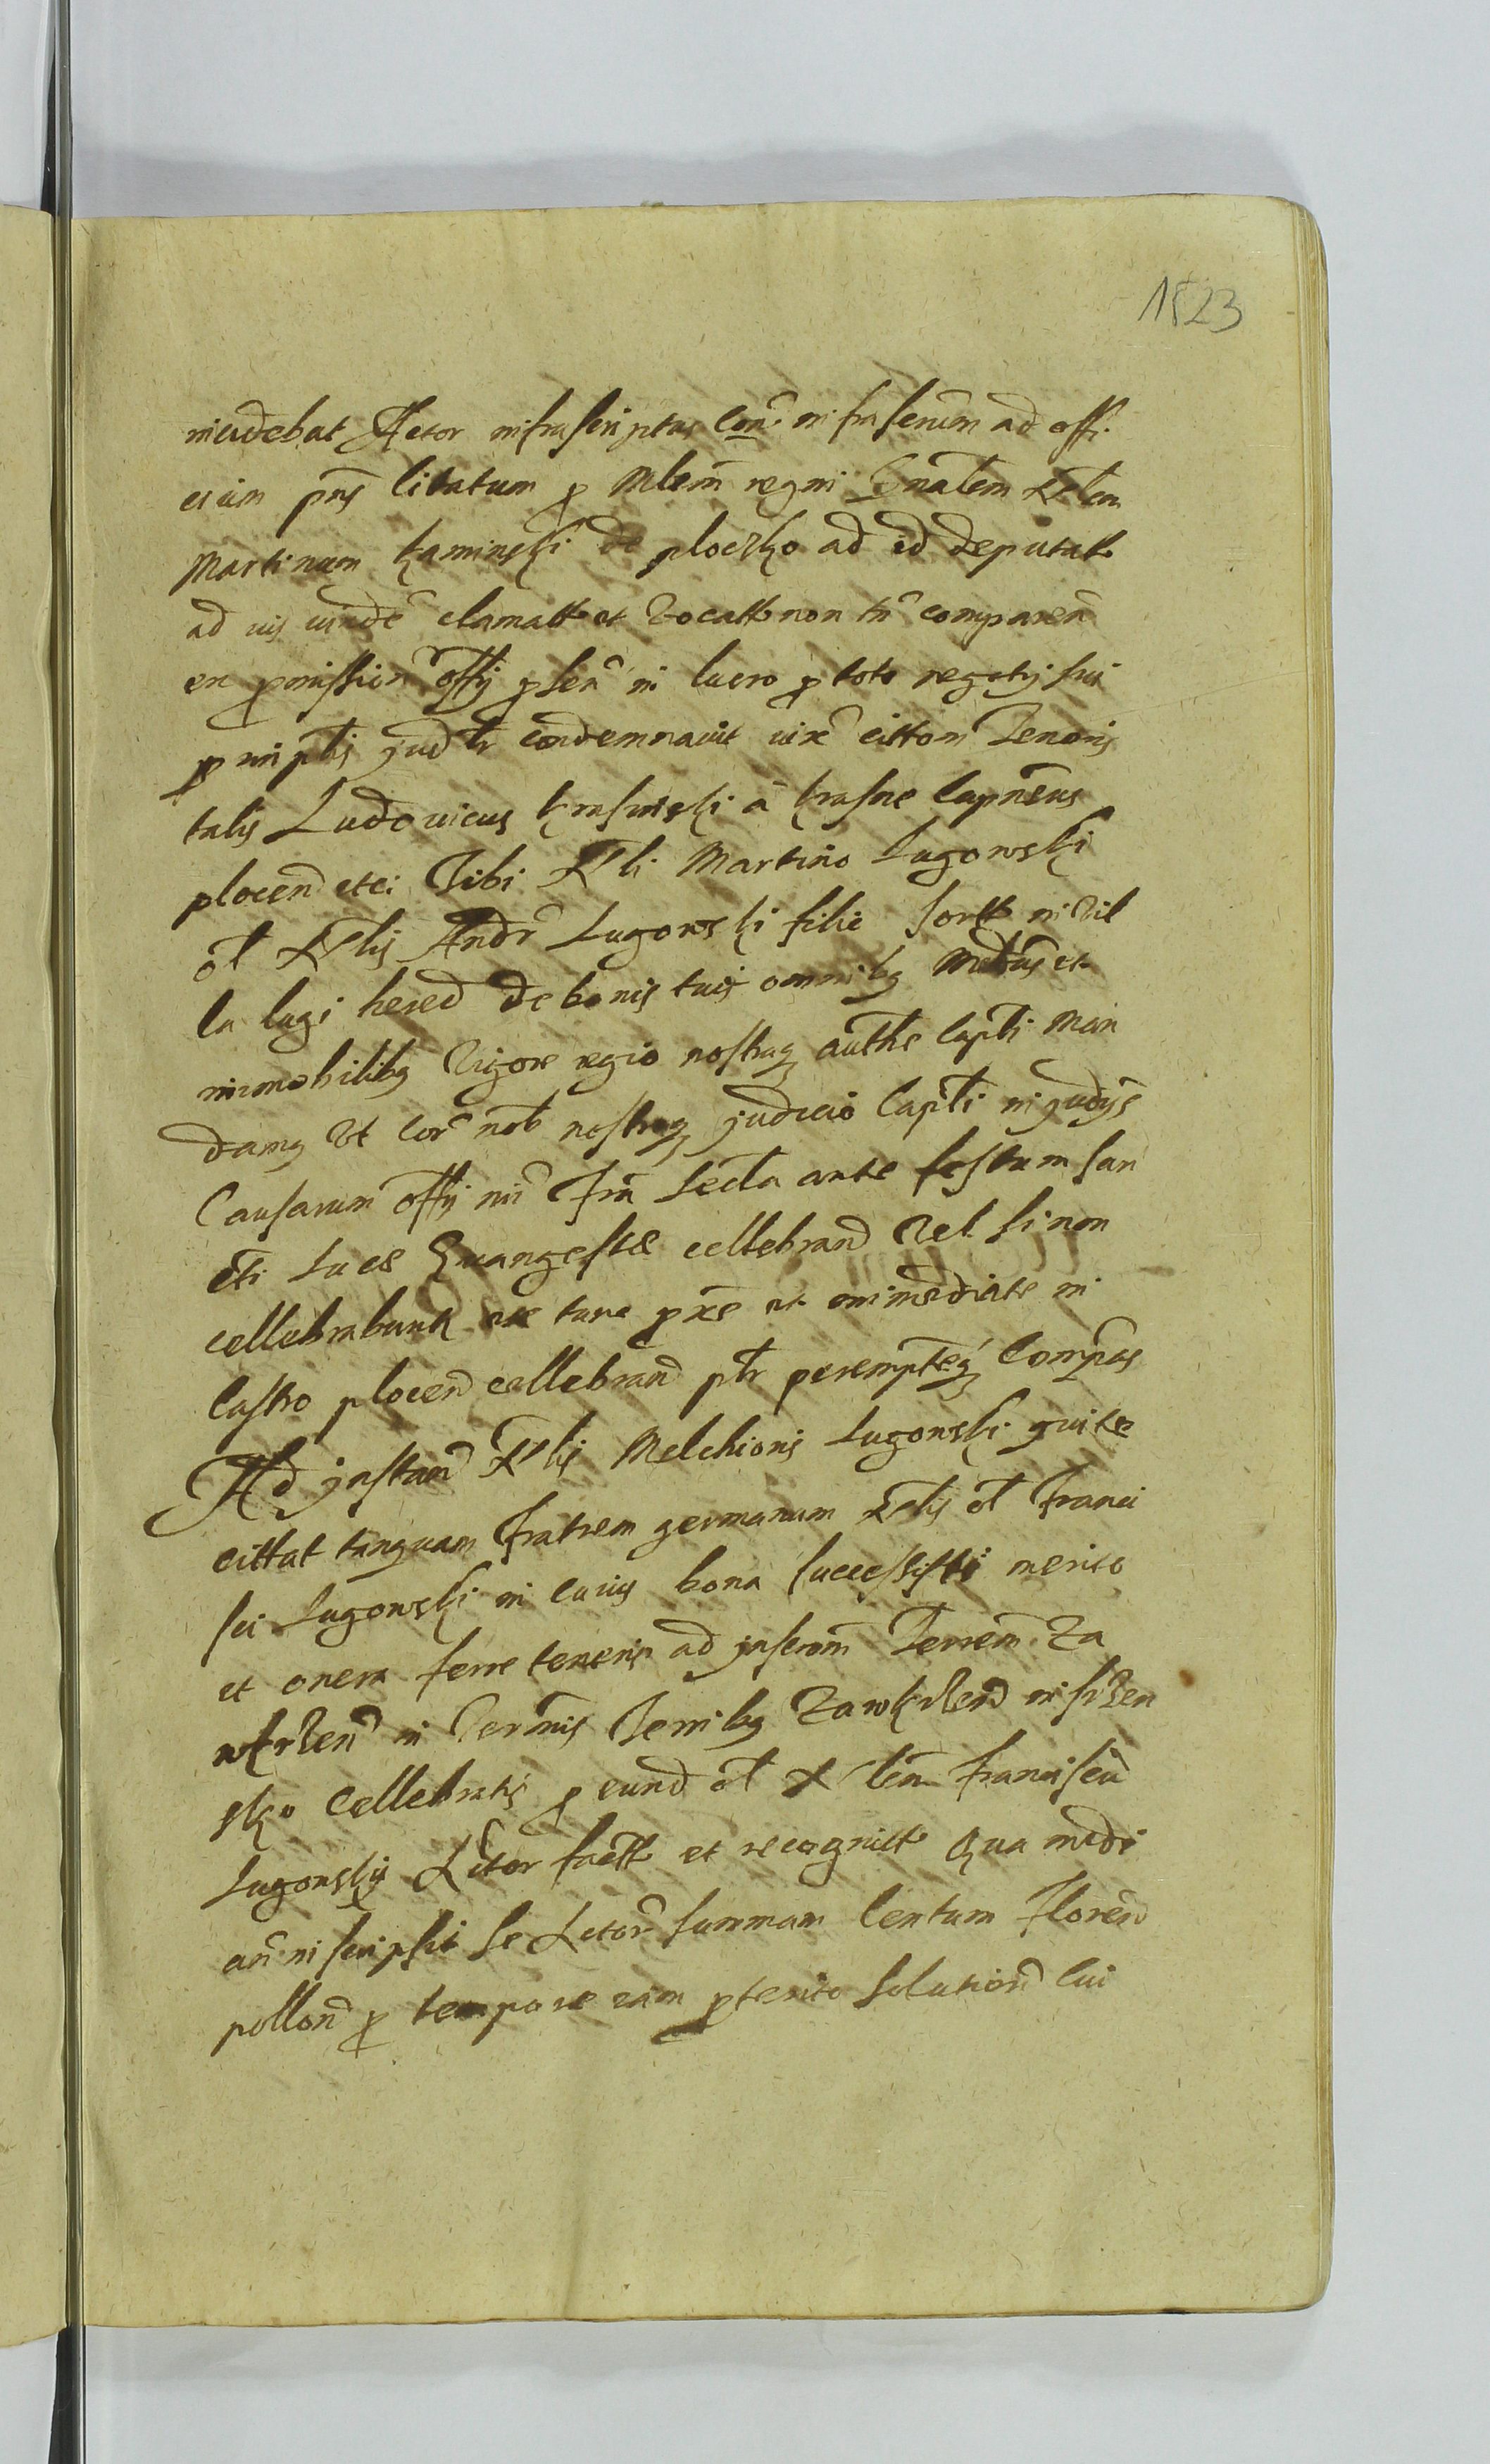 1523
incidebat Actor infrascriptus Con̄ infrascrām ad offi
cium pn̄s citatum p Mlem̄ regni Gn̄alem Nblem
Martinum Kaminski de ploczko ad id deputatt
ad uis vinde clamatt et vocatt non tn̄ comparen̄
en pmission̄ offij psen̄ in lucro p toto negotij sui
p miptis jud tr condemnavit vire citton̄ Tenoris
talis Ludouicus Krasinski a Krasne Capn̄eus
plocen̄ etc. Tibi Nbli Martino Lugowski
ol Nblis Andr̄ Lugowski filio sortt in vil
la lugi hered de bonis tuis omnibq Mobus et
immobilibq Vigore regio nostraq autte Capti Man
damq vt Cor̄ nob nostroq judicio Capti in judijs
Causarum offij nr̄i Fria secda ante festum San
cti Luce Evangeste cellebrand Vel si non
cellebrabunt ex tunc pxe et immediate in
Castro plocen̄ cellebrand ptr peremptēq Compas
Ad jnstan̄ Nblis Melchioris Lugowski qui te
cittat tanquam Fratrem germanum Nblis ol Franci
sci Lugowski in cuius bona successisti merito
et onera ferre teneris ad jnscrom̄ Terrem̄ Za
wkrzen̄ in Termis Terribq Zawkrzen̄ in srzen
sko Cellebratis p eund ol Nblem̄ Franciscū
Lugowskij Actor̄ factt et recognitt Qua medi
an̄ inscripsit se Actor̄ summam Centum Floren̄
pollon̄ p tempore iam pterito Solution̄ Cui